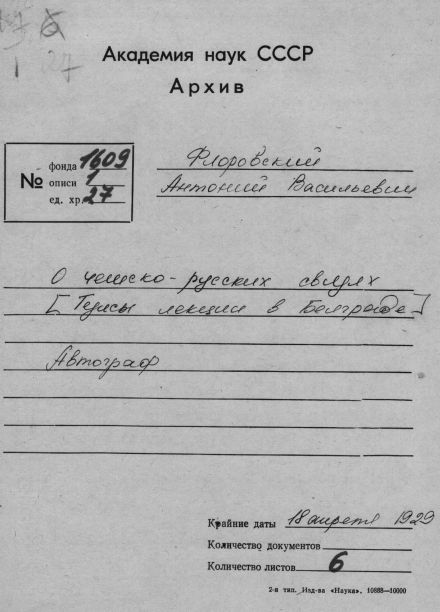 1 27
Академия наук СССР
Архив
№ фонда 1609
описи 1
ед. хр. 27
Флоровский
Антоний Васильевич
О чешско-русских связях
[Тезисы лекции в Белграде]
Автограф
Крайние даты 18 апреля 1929
Количество документов
Количество листов 6
2-я тип. Изд-ва «Наука». 10888—10000